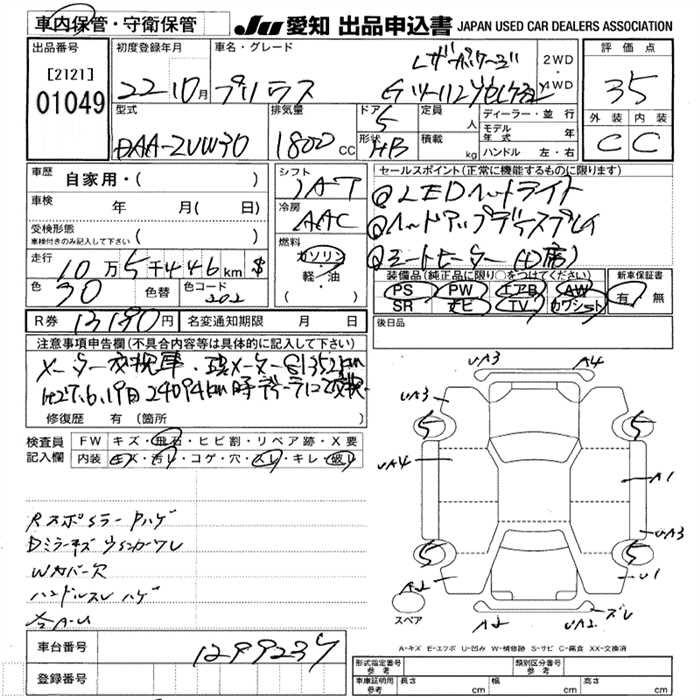 車内保管・守衛保管
JU 愛知 出品申込書 JAPAN USED CAR DEALERS ASSOCIATION
出品番号 初度登録年月 車名・グレード 評価点
[2121]
01049
22 10月 プリウス
レザーパッケージ
2WD
4WD
35
型式 排気量 ドア 定員 ディーラー・並行 外装 内装
DAA-ZVW30 1800cc 5 人
モデル年式 年
形状 積載
HB kg ハンドル 左・右 C C
車歴 自家用・( )
シフト IAT
セールスポイント(正常に機能するものに限ります)
車検 年 月(日)
冷房 AAC
①LEDヘッドライト
②ヘッドアップディスプレイ
③シートヒーター
受検形態 ( )
車検付きのみ記入して下さい
燃料 ガソリン 軽・油 ( )
走行 10万5千446km $
装備品(純正品に限り○をつけてください) 新車保証書
PS PW エアB AW 有・無
SR ナビ TV カワシート
色 色替 色コード
70 202
後日品
R券 13190円 名変通知期限 月 日
注意事項申告欄(不具合内容等は具体的に記入して下さい)
メーター交換車・現メーター81352km
H27.6.19日 24094km時ディーラーにて交換
修復歴 有 (箇所 )
検査員記入欄 FW キズ・飛石・ヒビ割・リペア跡・X要
内装 キズ・汚レ・コゲ・穴・スレ・キレ・破レ
RスポBラーPハゲ
Dミラーキズ ウィンカーワレ
Wカバー欠
ハンドルスレ ハゲ
各A・U
UA3 A4
UA3
5 5
UA4 A1
UA3
5 5
A2 U1
スペア A2 UA2 ズレ
A-キズ E-エクボ U-凹み W-補修跡 S-サビ C-腐食 XX-交換済
車台番号 1299237
登録番号
形式指定番号 参考 類別区分番号 参考
車庫証明用 参考 長さ cm 幅 cm 高さ cm